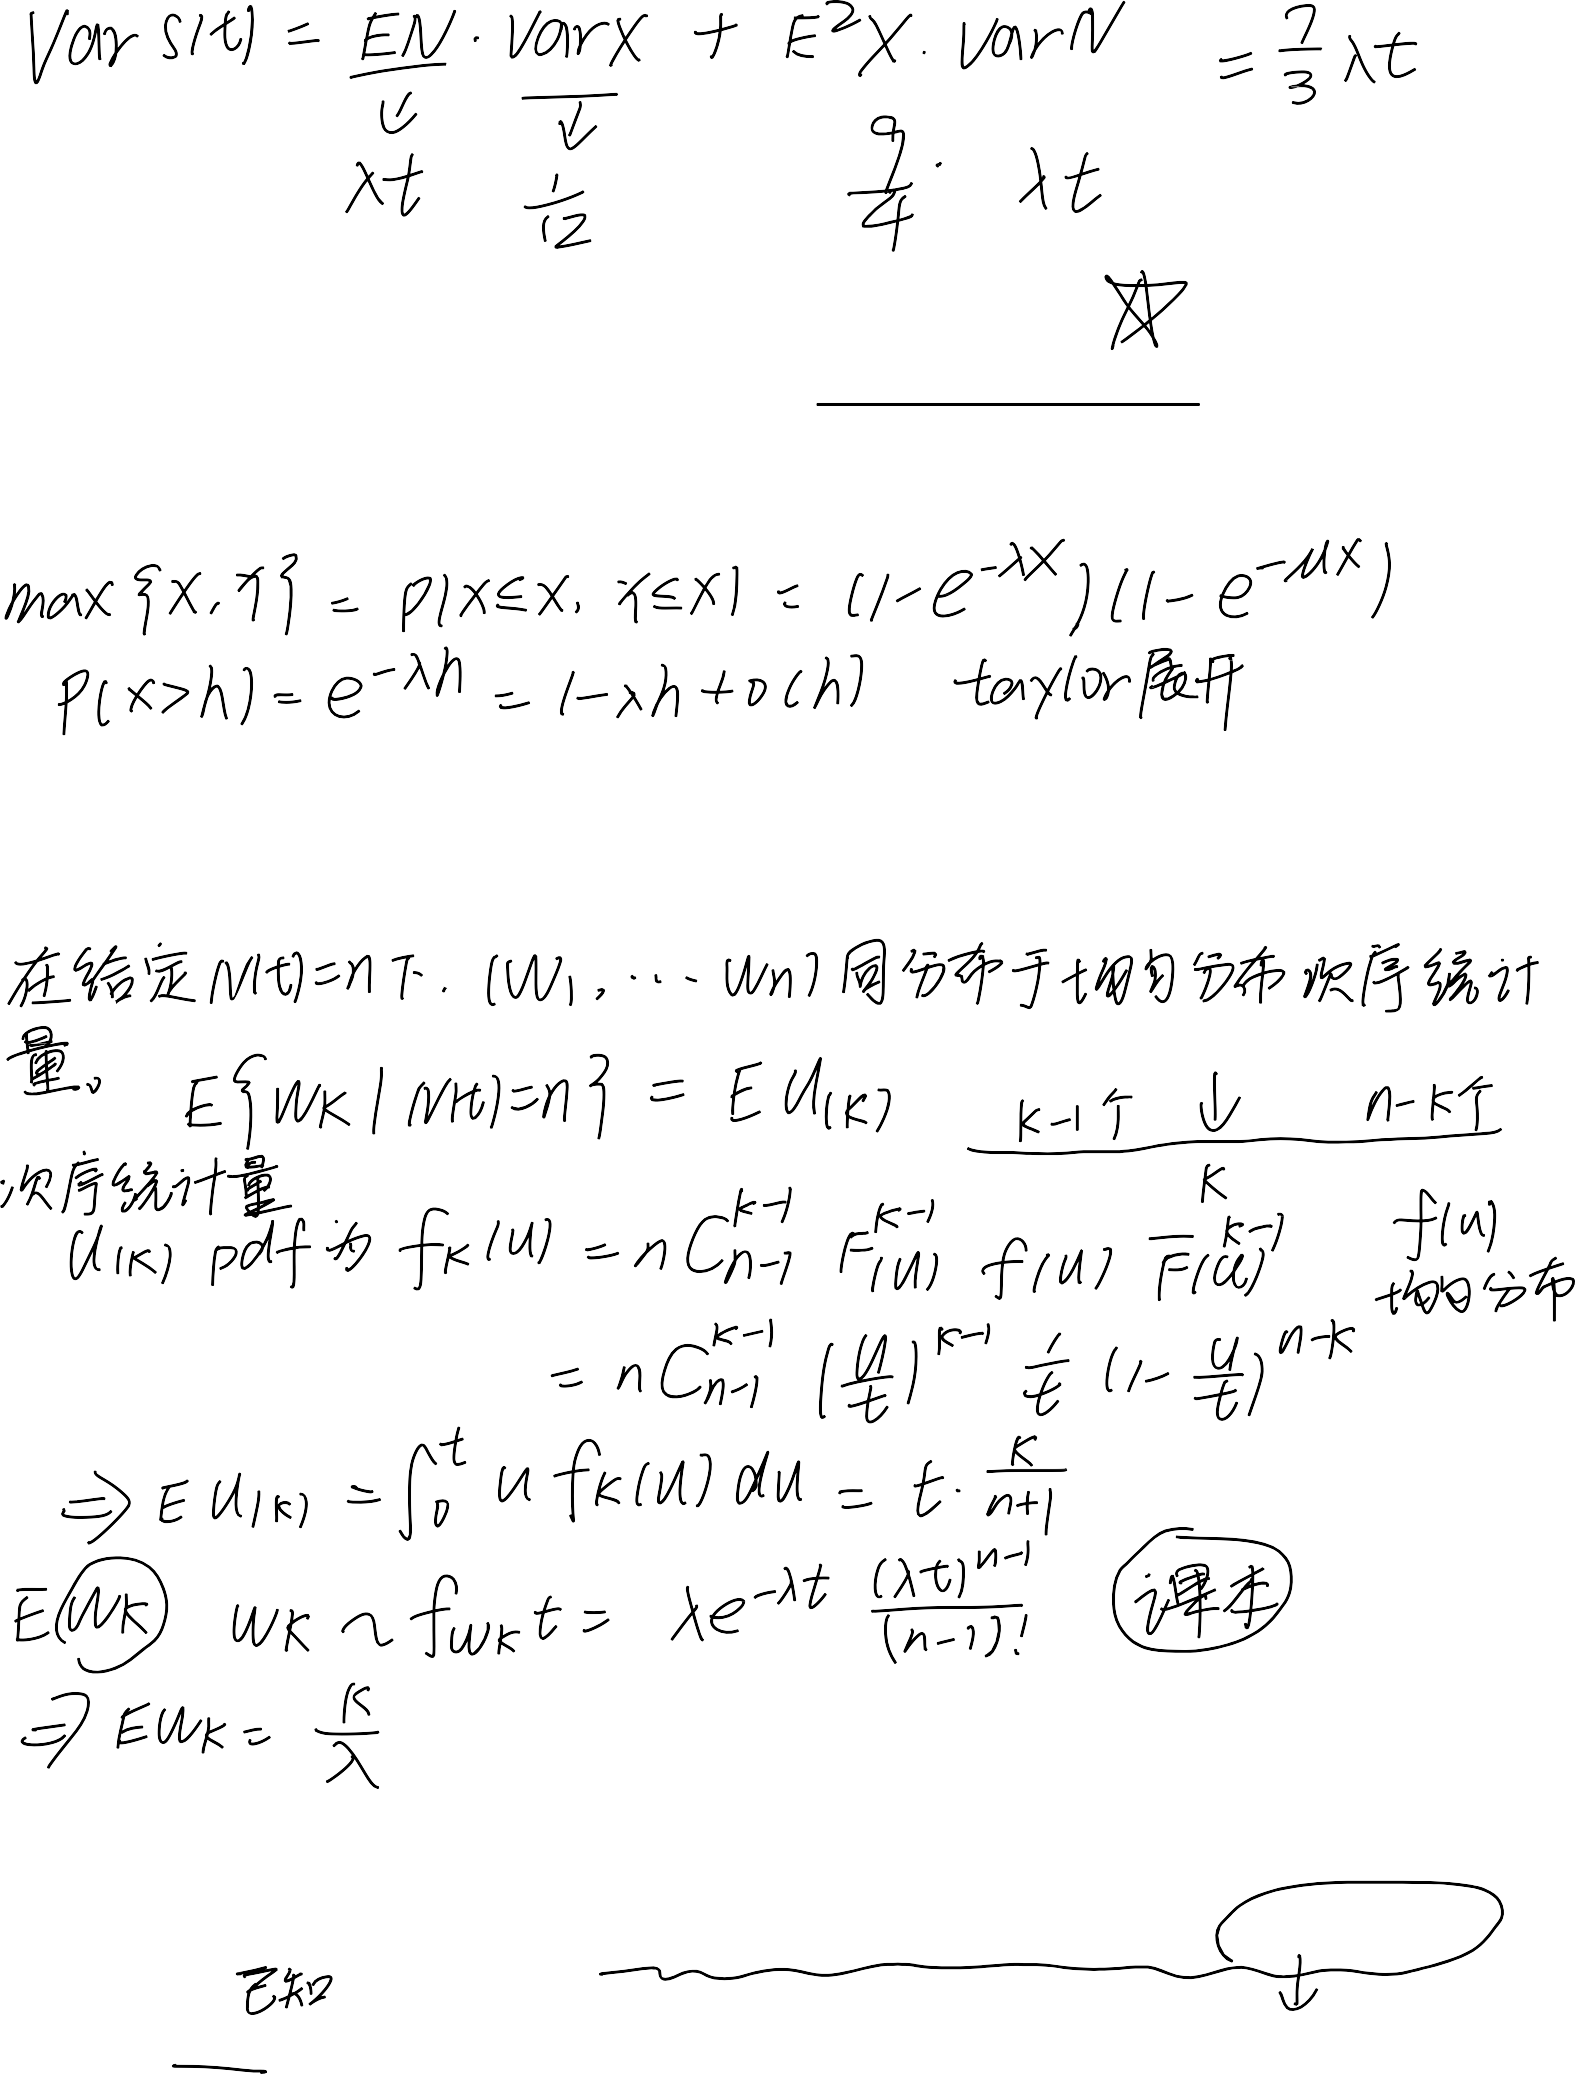 Var S(t) = EN · VarX + E²X · VarN = 7/3 λt
λt 1/12 9/4 · λt
max{X, Y} = P(X≤x, Y≤x) = (1-e^{-λx})(1-e^{-μx})
P(X>h) = e^{-λh} = 1-λh+o(h) taylor展开
在给定N(t)=n下. (W₁, ... Wn) 同分布于均匀分布次序统计
量。 E{WK | N(t)=n} = E U(K)
k-1个 ↓ n-k个
K
次序统计量
U(K) pdf为 fK(u) = n C_{n-1}^{k-1} F^{k-1}(u) f(u) F̅^{k-1}(u) f(u)
均匀分布
= n C_{n-1}^{k-1} (u/t)^{k-1} 1/t (1- u/t)^{n-k}
⇒ E U(K) = ∫₀^t u fK(u) du = t · K/(n+1)
E(WK) WK ~ f_{WK} t = λe^{-λt} (λt)^{n-1}/(n-1)! 课本
⇒ EWK = K/λ
已知